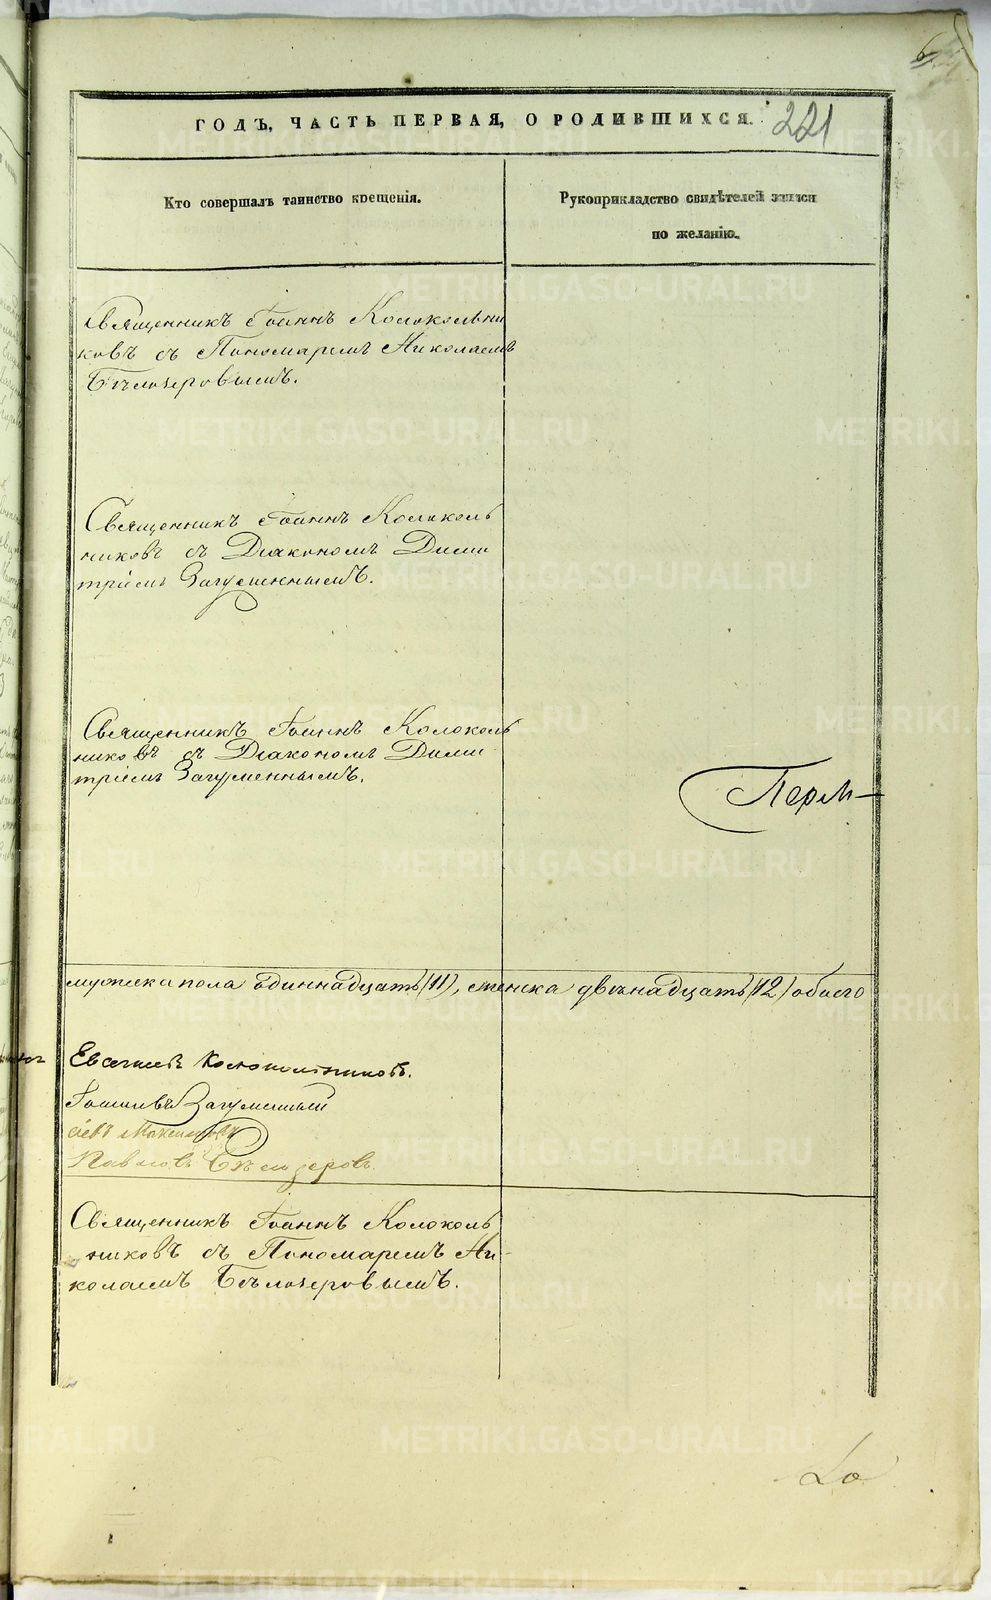 6
ГОДЪ, ЧАСТЬ ПЕРВАЯ, О РОДИВШИХСЯ. 221
Кто совершалъ таинство крещенія.
Рукоприкладство свидѣтелей записи
по желанію.
Священникъ Іоаннъ Колокольни
ковъ съ Пономаремъ Николаемъ
Бѣлозеровымъ.
Священникъ Іоаннъ Колоколь
никовъ съ Діакономъ Дими
тріемъ Загуменнымъ.
Священникъ Іоаннъ Колоколь
никовъ съ Діакономъ Дими
тріемъ Загуменнымъ.
Перм
мужска пола одиннадцать (11), женска двѣнадцать (12) обоего
Колокольниковъ.
Загуменный
Павловъ Бѣлозеровъ
Священникъ Іоаннъ Колоколь
никовъ съ Пономаремъ Ни-
колаемъ Бѣлозеровымъ.
METRIKI.GASO-URAL.RU